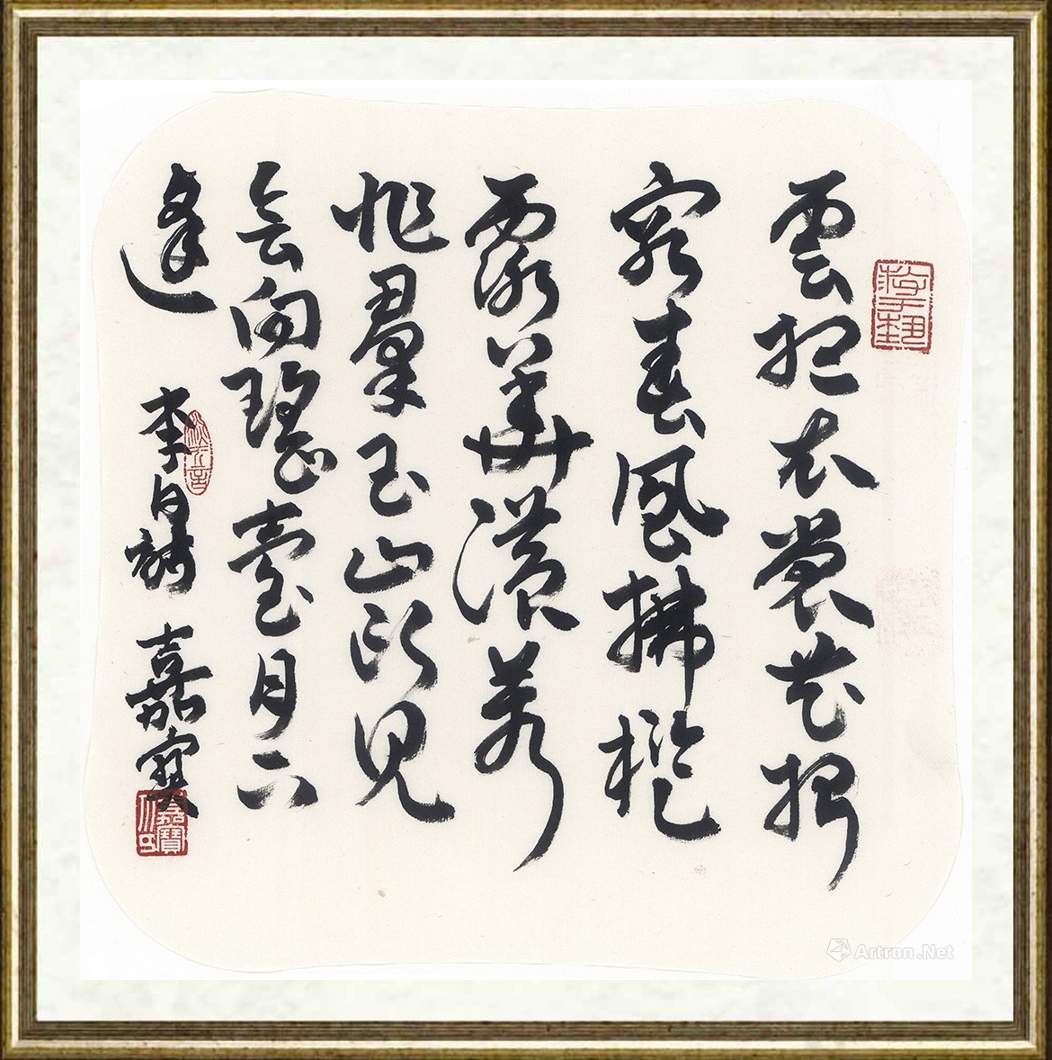 雲想衣裳花想
容春風拂檻
露華濃若
非羣玉山頭見
會向瑤臺月下
逢 李白詩 嘉寶
Artron.Net